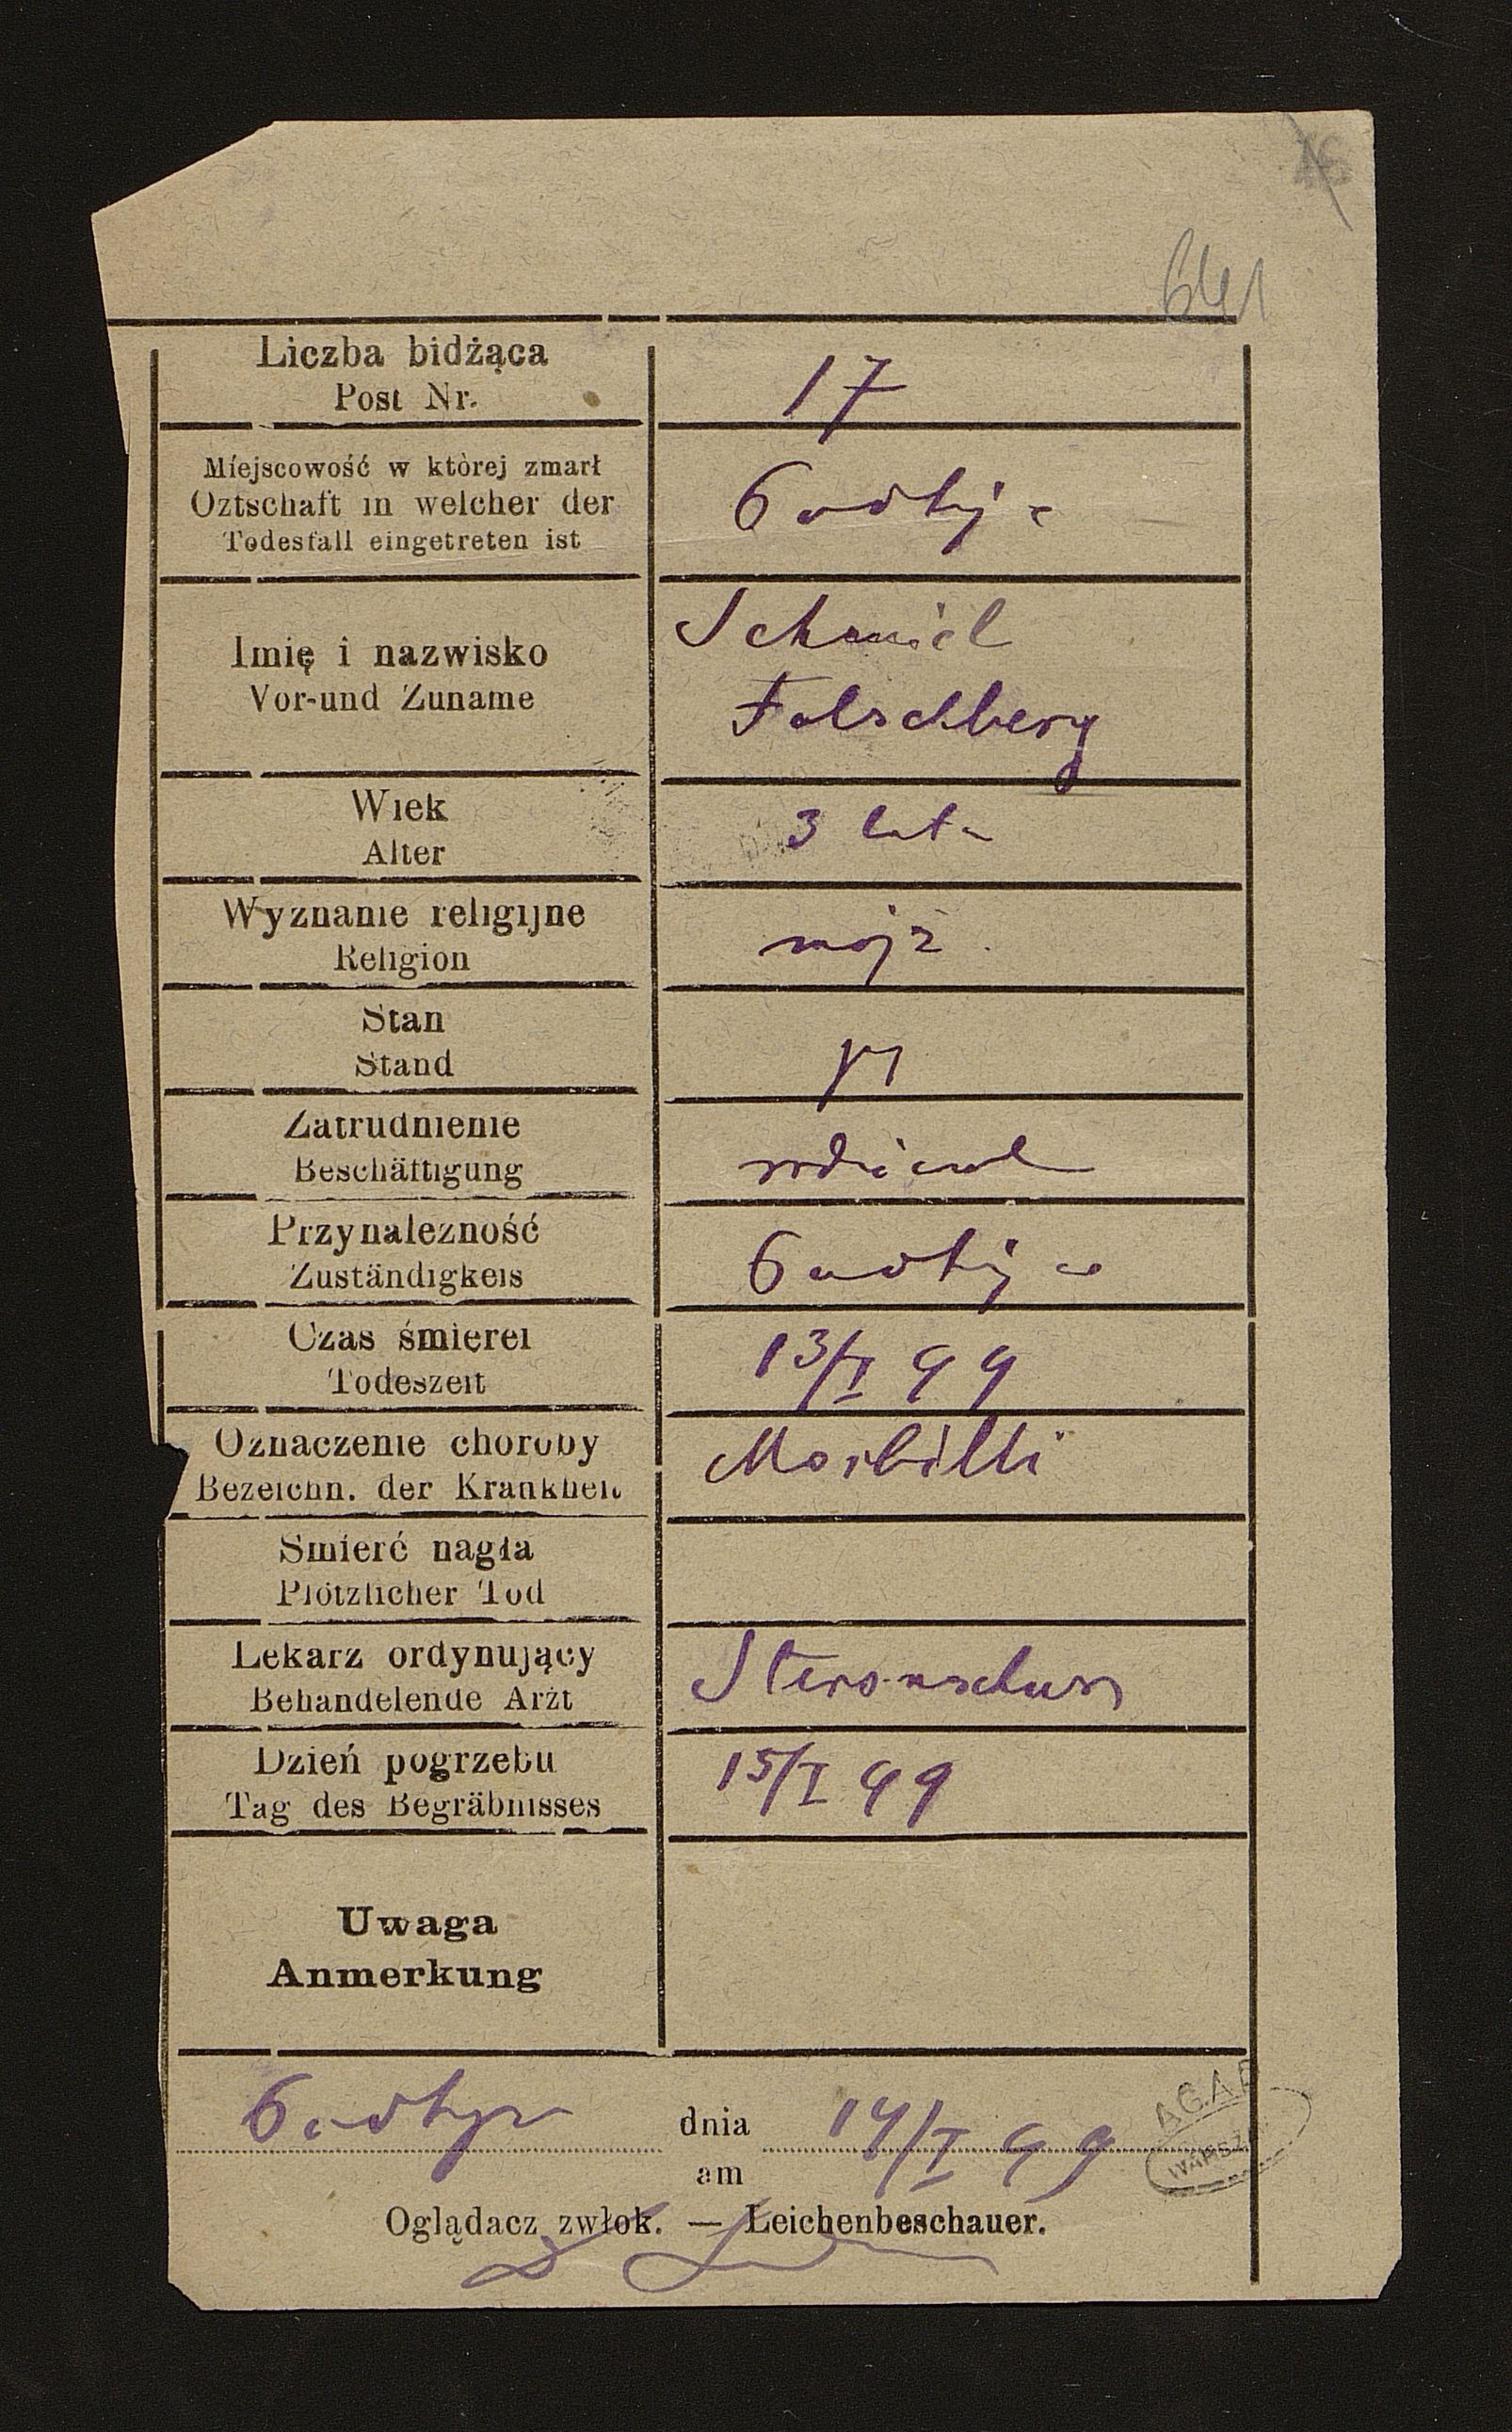 641
Liczba bidżąca
Post Nr.
17
Miejscowość w której zmarł
Oztschaft in welcher der
Todesfall eingetreten ist
Imię i nazwisko
Vor-und Zuname
Schmiel
Falschberg
Wiek
Alter
3 lata
Wyznanie religijne
Religion
mojż.
Stan
Stand
Zatrudnienie
Beschäftigung
Przynalezność
Zuständigkeis
Czas śmierei
Todeszeit
13/I 99
Oznaczenie choroby
Bezeichn. der Krankheit
Morbilli
Smierć nagła
Plötzlicher Tod
Lekarz ordynujący
Behandelende Arzt
Dzień pogrzebu
Tag des Begräbnisses
15/I 99
Uwaga
Anmerkung
dnia 14/I 99
am
Oglądacz zwłok. — Leichenbeschauer.
A.G.A.D.